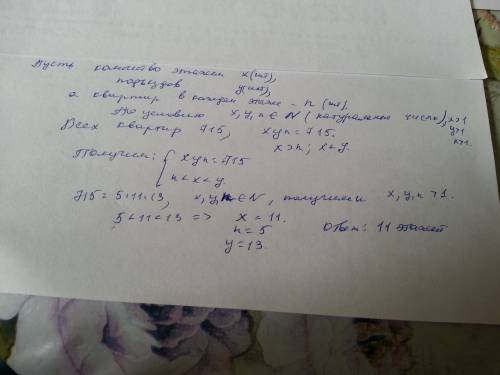 Пусть количество этажей x (шт),
подъездов y (шт),
а квартир в каждом этаже – n (шт).
По условию x, y, n ∈ N (натуральные числа), x>1
y>1
n>1.
Всех квартир 715, xyn = 715.
x > n; x < y.
Получим: { xyn = 715
n < x < y.
715 = 5·11·13, x, y, n ∈ N, получим x, y, n > 1.
5 < 11 < 13 => x = 11. Ответ: 11 этажей
n = 5
y = 13.